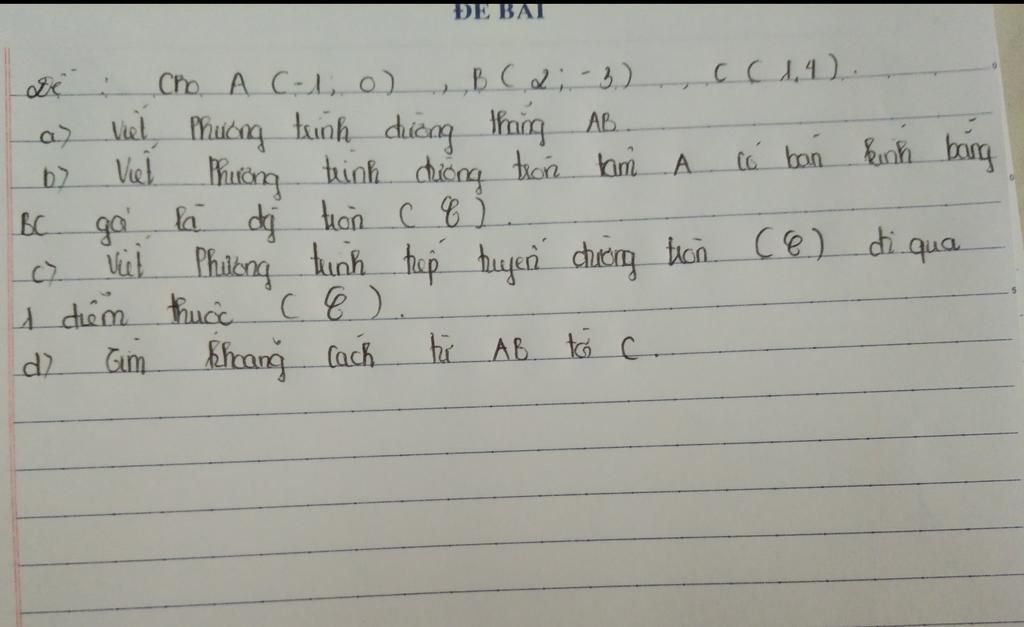 ĐỀ BÀI
Đề : Cho A (-1; 0) , B ( 2; -3) , C ( 1,4).
a) Viết Phương trình đường thẳng AB
b) Viết Phương trình đường tròn tâm A có bán kính bằng
BC gọi là đg tròn ( C ).
c) Viết Phương trình tiếp tuyến đường tròn ( C ) đi qua
1 điểm thuộc ( C ).
d) Tìm khoảng cách từ AB tới C.